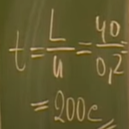 t = L/u = 40/0,2 =
= 200c